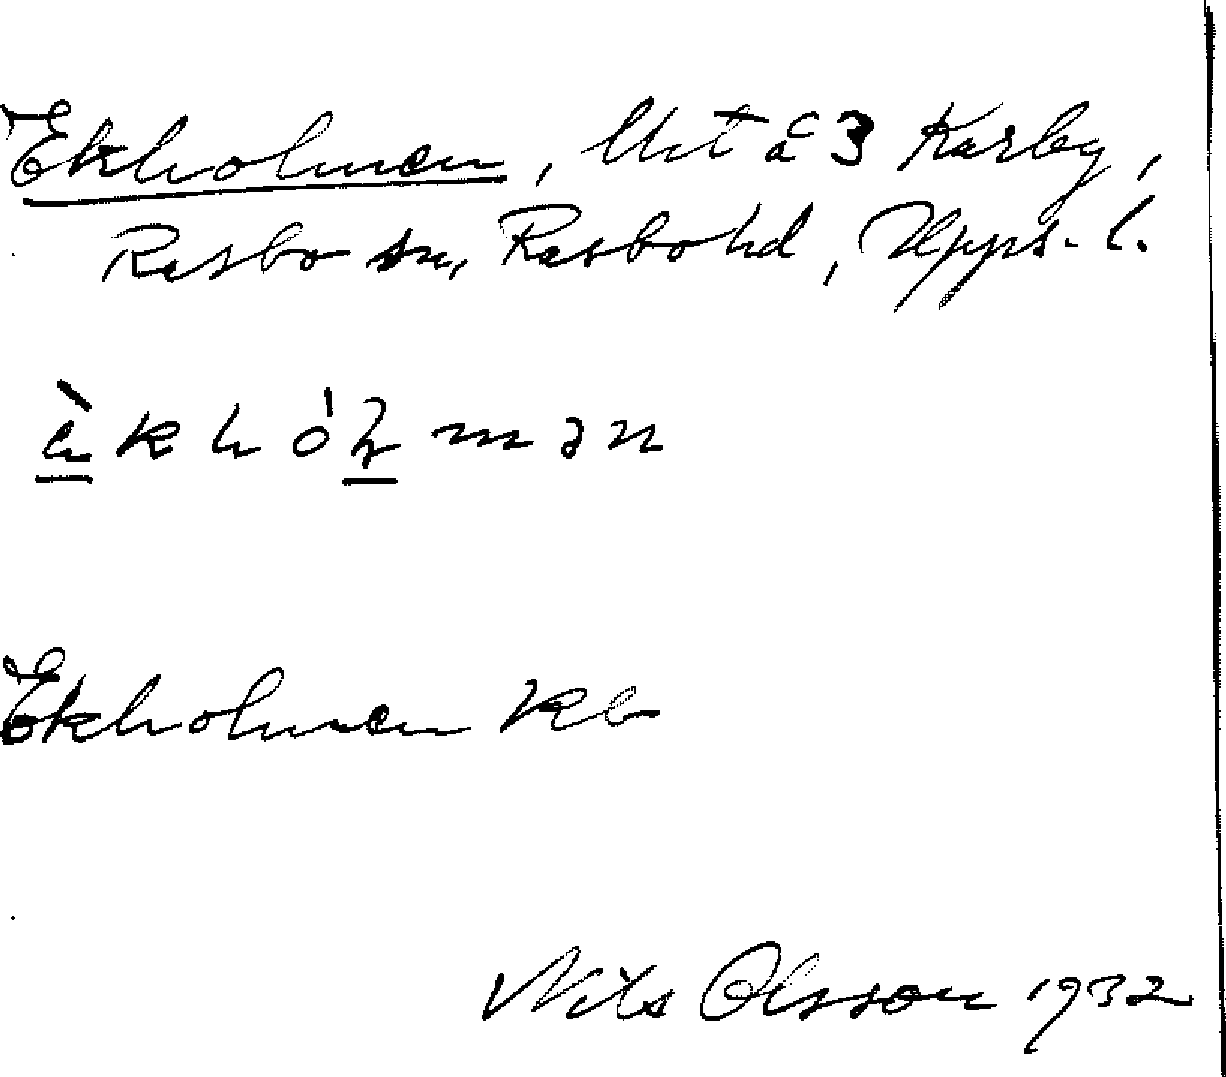 Ekholmen, lht å 3 Karby,
Rasbo sn, Rasbo hd, Upps. l.
Ekholmen kb
Nils Olsson 1932